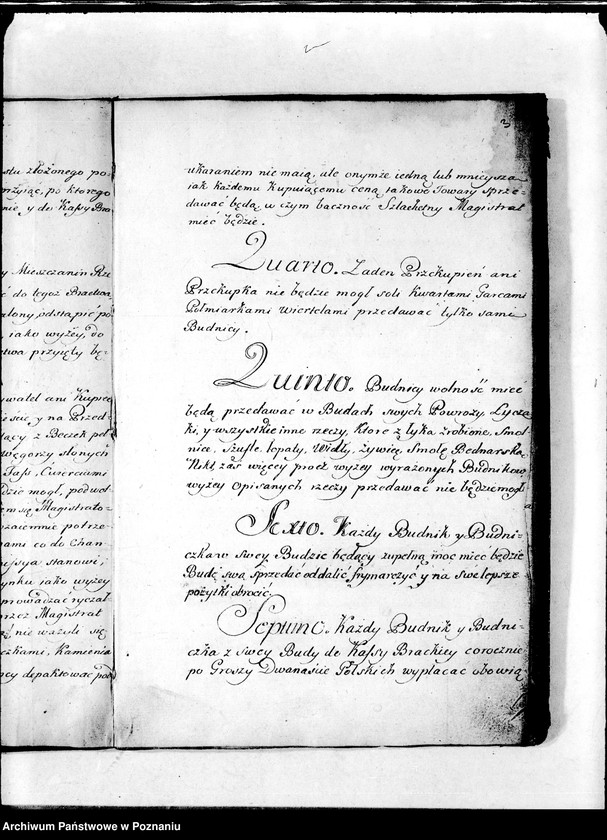 stu złożonego po-
po ktorego
nie y do Kassy Bra
y Mieszczanin Rze
ć do tegoż Bractwa
odstąpić po
iako wyżey, do
ctwa przyięty bę-
ani Kupiec
y na Przed-
z Beczek
Węgorzy słonych
dzie mogł, podwol-
em się Magistrato-
potrze-
ami co do Chan-
stanowi,
ynku iako wyżey
prowadzać ryczał
przez Magistrat
nie ważeli się
czkami, Kamienia
depaktować pod
3
ukaraniem nie maią, ale onymże iedną lub mnieyszą
iak każdemu Kupuiącemu ceną iakowe Towary sprze-
dawać będą, w czym baczność Szlachetny Magistrat
mieć będzie.
Quarto. Zaden Przekupień ani
Przekupka nie będzie mogł soli Kwartami Garcami
Połmiarkami Wiertelami przedawać tylko sami
Budnicy.
Quinto. Budnicy wolność miec
będą przedawać w Budach swych Powrozy, Łycza
ki, y wszystkie inne rzeczy, ktore z łyka zrobione, Smol
nice, Szufle, łopaty, Widły, żywicę, Smołę Bednarską
Nikt zaś więcey procz wyżey wyrażonych Budnikow
wyżey opisanych rzeczy przedawać nie będzie mogł
Sexto. Każdy Budnik y Budni-
czka w swey Budzie będący zupełną moc miec będzie
Budę swą sprzedać oddalić frymarczyć y na swe lepsze
pożytki obrocić.
Septimo. Każdy Budnik y Budni-
czka z swey Budy do Kassy Brackiey corocznie
po Groszy Dwanaście Polskich wypłacać obowią
Archiwum Państwowe w Poznaniu